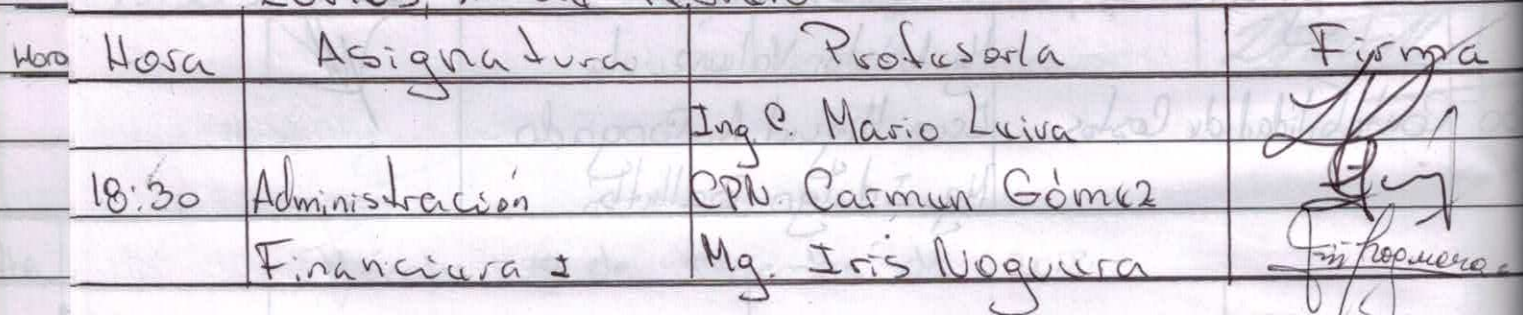 Hora Hora Asignatura Profesor/a Firma
Ing C. Mario Leiva
18:30 Administración CPN. Carmen Gómez
Financiera I Mg. Iris Noguera